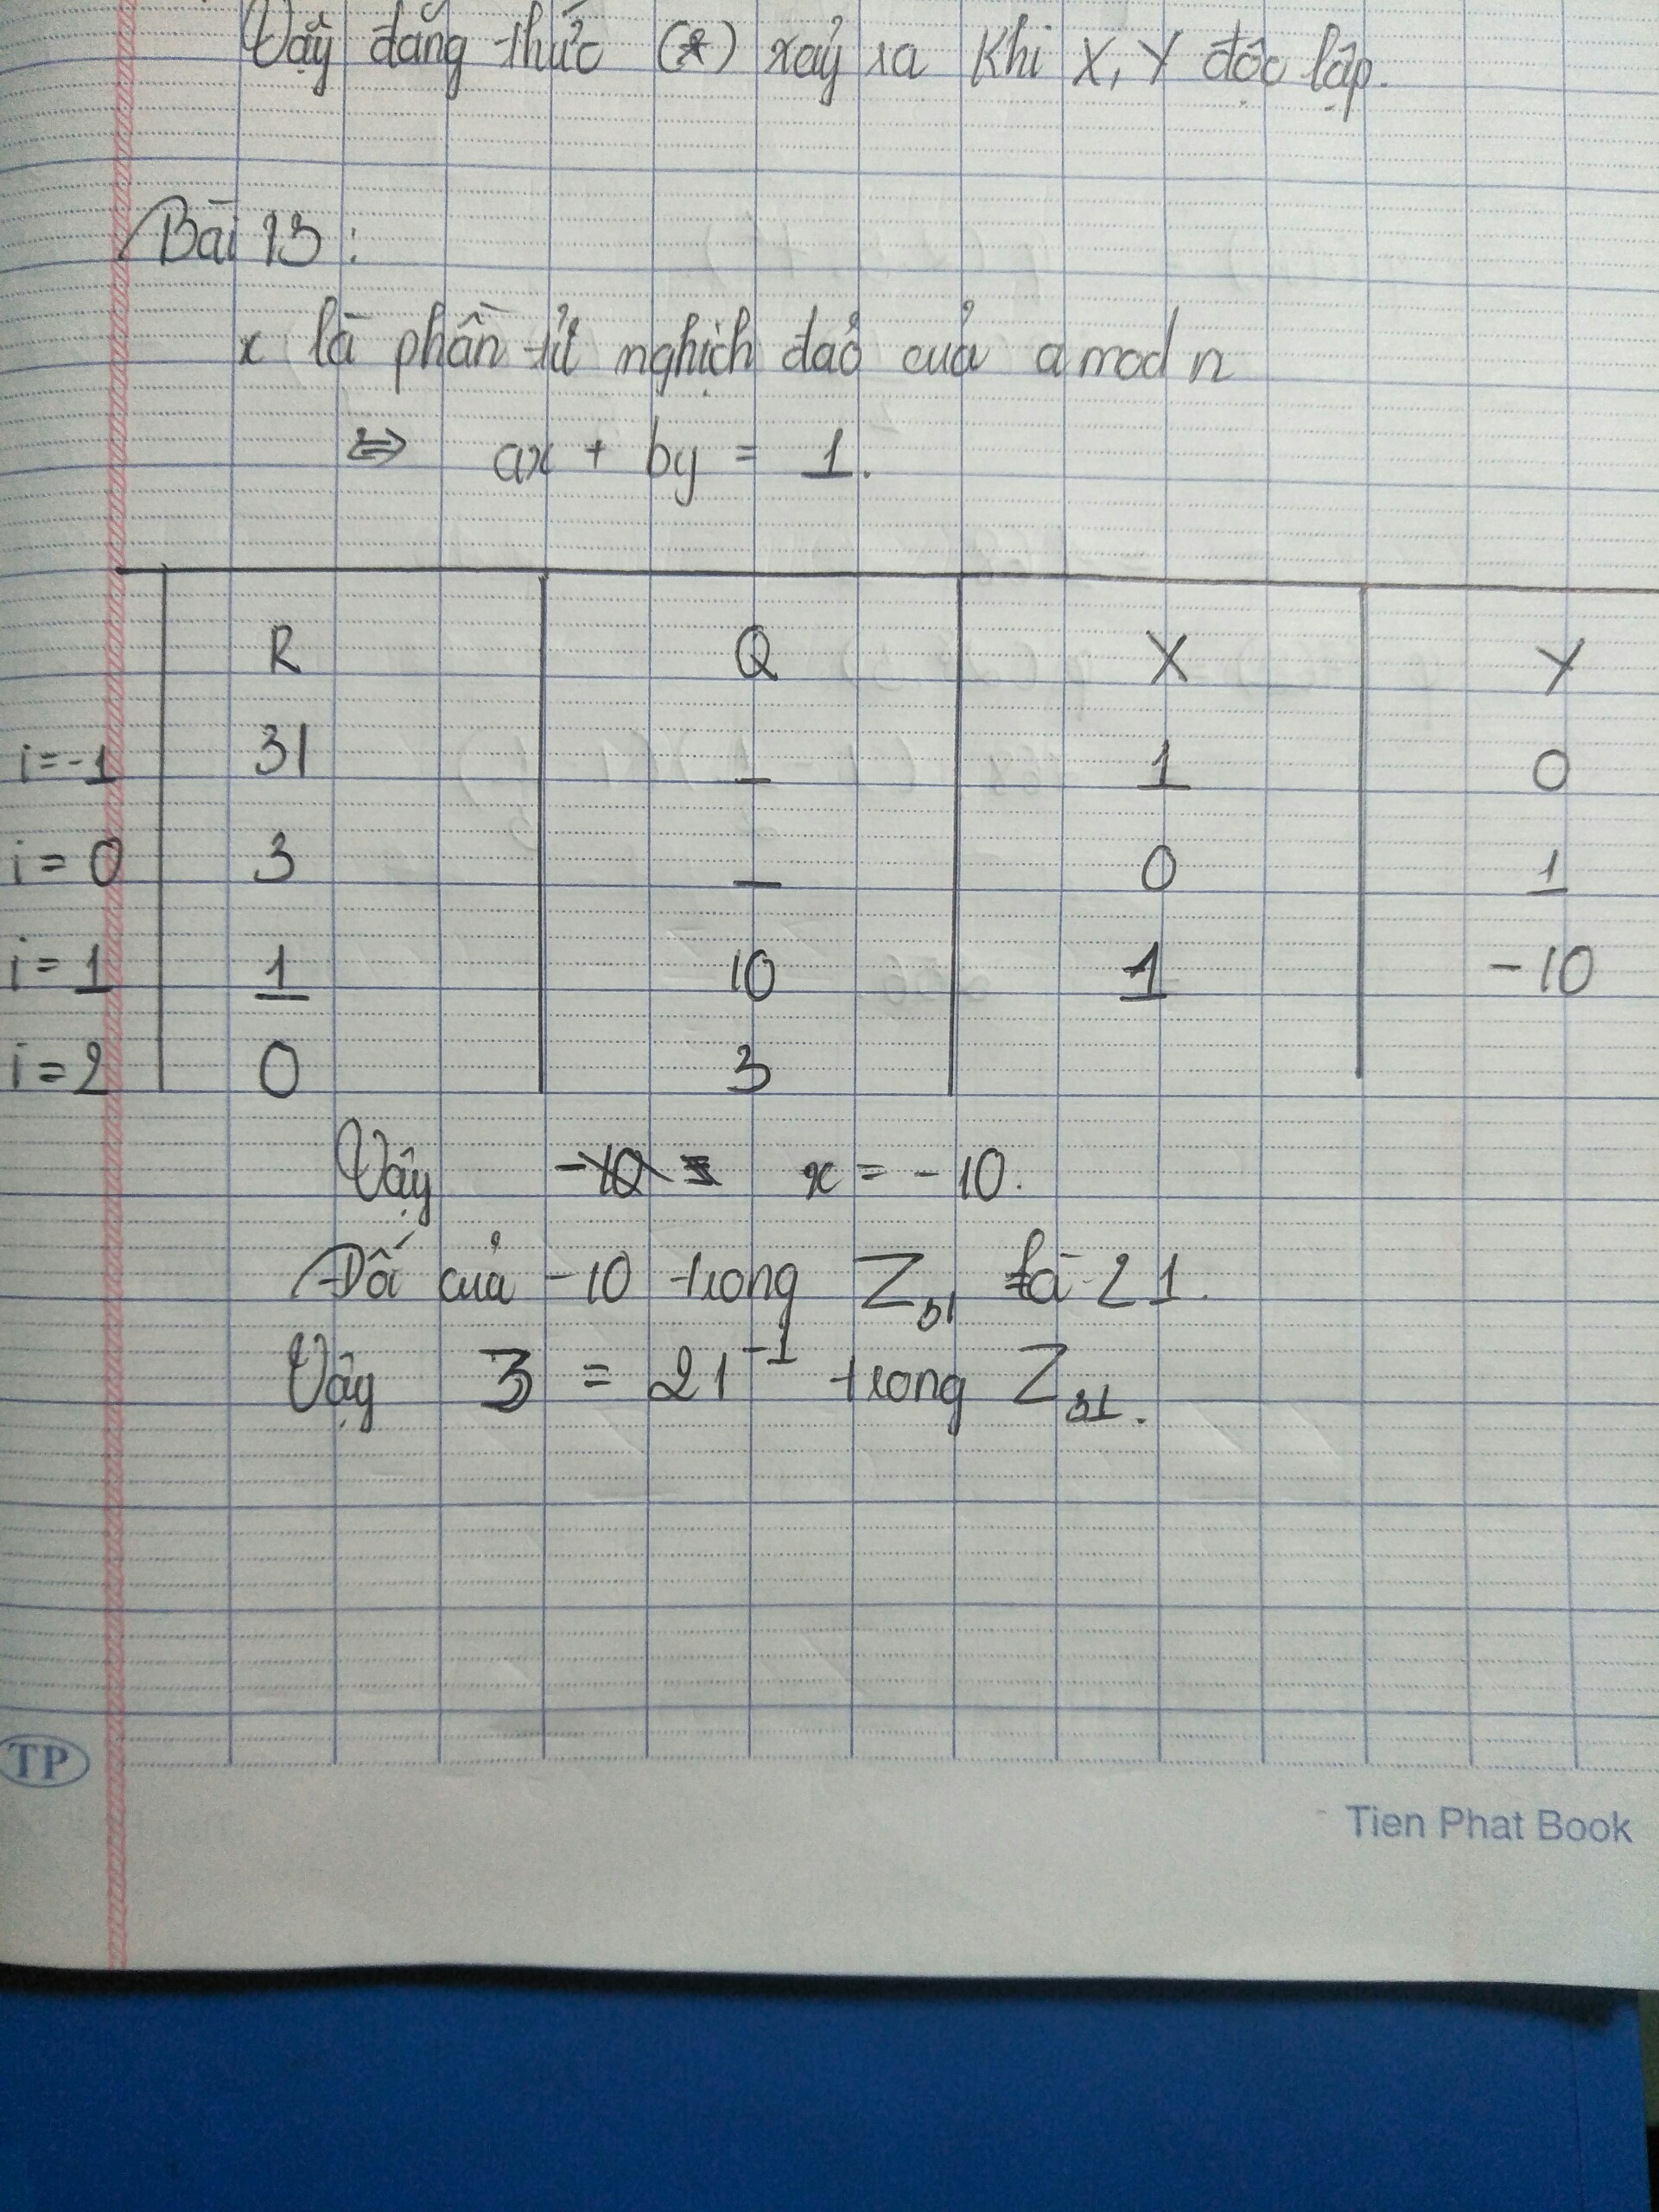 Vậy đẳng thức (*) xảy ra khi X, Y độc lập.
Bài 13:
x là phần tử nghịch đảo của a mod n
⇔ ax + by = 1.
R Q X Y
i=-1 31 _ 1 0
i=0 3 _ 0 1
i=1 1 10 1 -10
i=2 0 3
Vậy x = -10.
Đối của -10 trong Z₃₁ là 21.
Vậy 3 = 21⁻¹ trong Z₃₁.
TP
Tien Phat Book